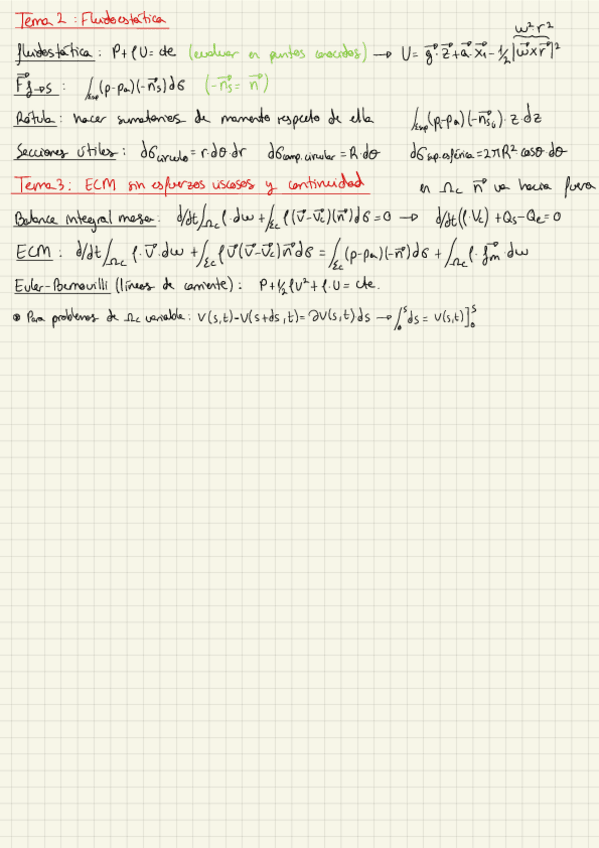 Tema 2: Fluidoestática
w²r²
fluidostática: P+ρU=cte (evaluar en puntos conocidos) → U= g⃗·z⃗+a⃗·x⃗₁-½|w⃗×r⃗|²
F⃗f→s: ∫sup(p-pa)(-n⃗s)dσ (-n⃗s=n⃗)
Rótula: hacer sumatorios de momento respecto de ella ∫sup(p-pa)(-n⃗s)·z·dz
Secciones útiles: dσcirculo=r·dθ·dr dσcomp.circular=R·dθ dσsup.esférica=2πR²cosθ·dθ
Tema 3: ECM sin esfuerzos viscosos y continuidad en Ωc n⃗ va hacia fuera
Balance integral masa: d/dt∫Ωc ρ·dw+∫Σc ρ(v⃗-v⃗c)(n⃗)dσ=0 → d/dt(ρ·Vc)+Qs-Qe=0
ECM: d/dt∫Ωc ρ·v⃗·dw+∫Σc ρv⃗(v⃗-v⃗c)n⃗dσ=∫Σc(p-pa)(-n⃗)dσ+∫Ωc ρ·f⃗m·dw
Euler-Bernouilli (líneas de corriente): P+½ρv²+ρ·U=cte.
Para problemas de Ωc variable: v(s,t)-v(s+ds,t)=∂v(s,t)ds → ∫₀ˢds=v(s,t)]₀ˢ